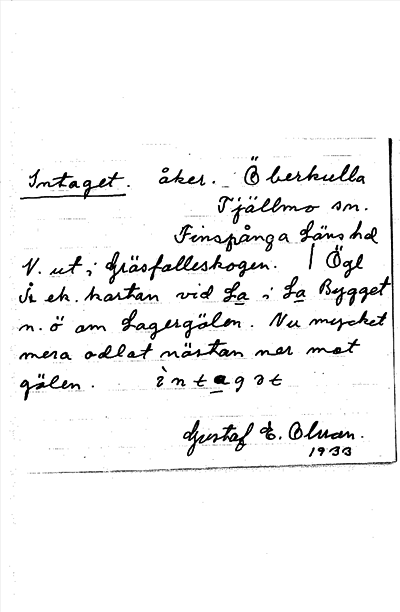 Intaget. åker. Öberkulla
Tjällmo sn.
Finspånga Läns hd
V. ut i Gräsfalleskogen. | Ögl
Är ek. kartan vid La i La Bygget
n. ö om Lagergölen. Nu mycket
mera odlat nästan ner mot
gölen. ìntagət
Gustaf E. Olsson.
1933